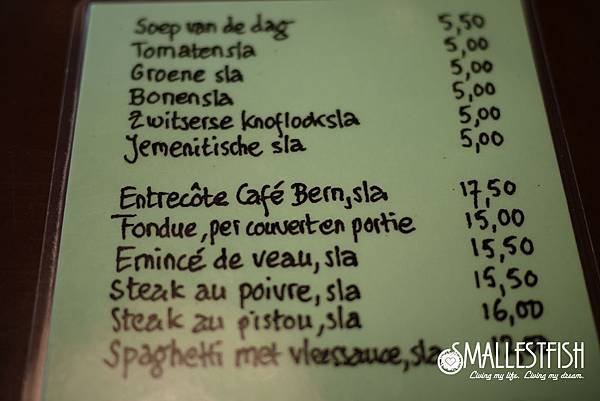 Soep van de dag 5,50
Tomatensla 5,00
Groene sla 5,00
Bonensla 5,00
Zwitserse knoflooksla 5,00
Jemenitische sla 5,00
Entrecôte Café Bern, sla 17,50
Fondue, per couvert en portie 15,00
Emincé de veau, sla 15,50
Steak au poivre, sla 15,50
Steak au pistou, sla 16,00
Spaghetti met vleessauce, sla
SMALLESTFISH
Living my life. Living my dream.